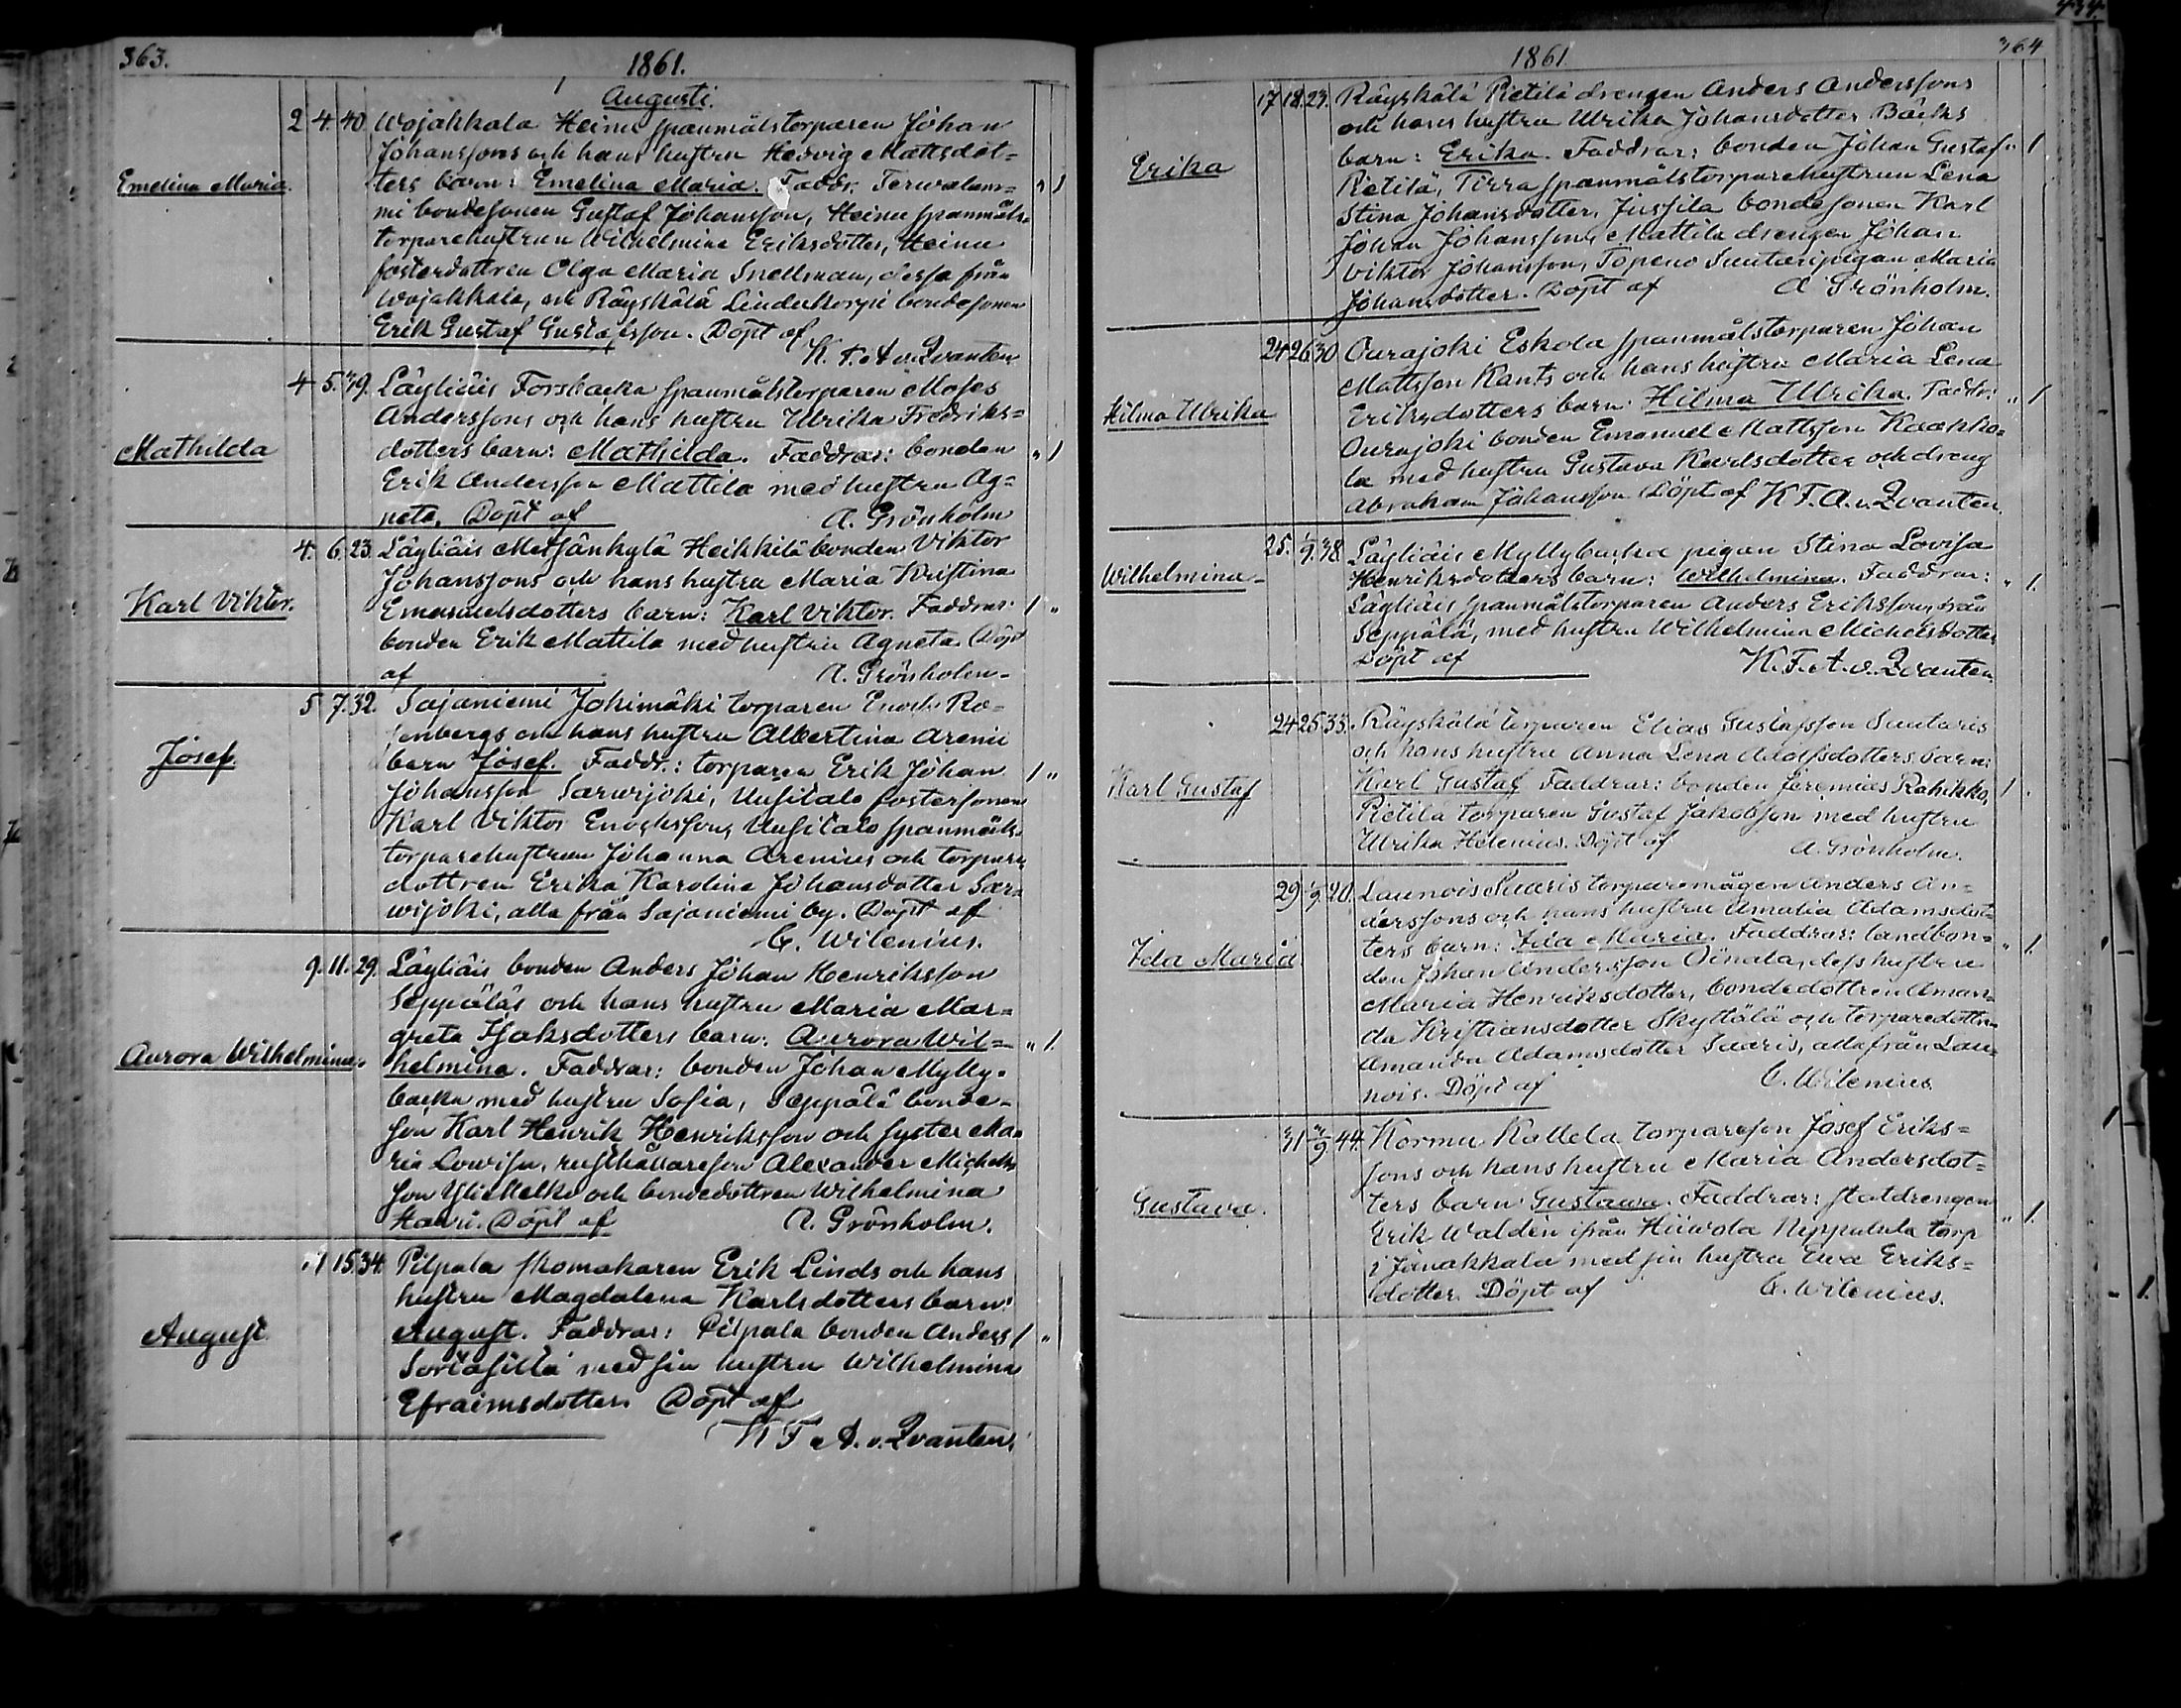 363.
1861.
Augusti.
Emelina Maria.
2 4. 40. Wojakkala Heinu spanmålstorparen Johan
Johanssons och hans hustru Hedvig Mattsdot=
ters barn: Emelina Maria. Faddr. Terwalam= " 1
mi bondesonen Gustaf Johansson, Heinu spanmåls=
torparehustrun Wilhelmina Eriksdotter, Heinu
fosterdottren Olga Maria Snellman, dessa från
Wojakkala, och Räyskälä Linderkorpi bondesonen
Erik Gustaf Gustafsson. Döpt af
K. F. A. v. Qvanten
Mathilda
4 5. 39. Läyliäis Forsbacka spanmålstorparen Moses
Anderssons och hans hustru Ulrika Fredriks=
dotters barn: Mathilda. Faddrar: bonden " 1
Erik Andersson Mattila med hustru Ag=
neta. Döpt af A. Grönholm
Karl Viktor.
4. 6. 23. Läyliäis Metsänkylä Heikkilä bonden Viktor
Johanssons och hans hustru Maria Kristina
Emanuelsdotters barn: Karl Viktor. Faddrar: 1 "
bonden Erik Mattila med hustru Agneta. Döpt
af A. Grönholm.
Josef.
5 7. 32. Sajaniemi Jokimäki torparen Enoch Ro=
senbergs och hans hustru Albertina Arenii
barn Josef. Faddr.: torparen Erik Johan 1 "
Johansson Sarwijoki, Uusitalo fostersonen
Karl Viktor Enochsson, Uusitalo spanmåls
torparehustrun Johanna Arenius och torpare
dottren Erika Karolina Johansdotter Sar=
wijoki, alla från Sajaniemi by. Döpt af
C. Wilenius.
Aurora Wilhelmina.
9. 11. 29. Läyliäis bonden Anders Johan Henriksson
Seppäläs och hans hustru Maria Mar=
greta Isaksdotters barn: Aurora Wil= " 1.
helmina. Faddrar: bonden Johan Mylly=
backa med hustru Sofia, Seppälä bonde=
son Karl Henrik Henriksson och syster Ma=
ria Lowisa, rusthållareson Alexander Michels
son Yli Melko och bondedottren Wilhelmina
Hawi. Döpt af A. Grönholm.
August.
11 15. 34. Pilpala skomakaren Erik Linds och hans
hustru Magdalena Karlsdotters barn:
August. Faddrar: Pilpala bonden Anders 1 "
Sortasilta med sin hustru Wilhelmina
Efraimsdotter. Döpt af
K F A. v. Qvanten.
364
1861
Erika
17 18. 23. Räyskälä Pietilä drengen Anders Anderssons
och hans hustru Ulrika Johansdotter Bäcks
barn: Erika. Faddrar: bonden Johan Gustaf " 1
Pietilä, Tirra spanmålstorparehustrun Lena
Stina Johansdotter, Jussila bondesonen Karl
Johan Johansson, Mattila drengen Johan
Viktor Johansson, Topeno Suutaripigan Maria
Johansdotter. Döpt af A Grönholm.
Hilma Ulrika
24 26 30 Ourajoki Eskola spanmålstorparen Johan
Mattsson Kants och hans hustru Maria Lena
Eriksdotters barn: Hilma Ulrika. Faddr: " 1
Ourajoki bonden Emanuel Mattsson Kaakko=
la med hustru Gustava Karlsdotter och dreng
Abraham Johansson Döpt af K. F. A. v. Qvanten.
Wilhelmina
25. 1/9. 38 Läyliäis Myllybacka pigan Stina Lovisa
Henriksdotters barn: Wilhelmina. Faddrar: " 1.
Läyliäis spanmålstorparen Anders Eriksson, från
Seppälä, med hustru Wilhelmina Michelsdotter
Döpt af K. F. A. v. Qvanten.
Karl Gustaf
24 25 33. Räyskälä torparen Elias Gustafsson Suutaris
och hans hustru Anna Lena Adolfsdotters barn:
Karl Gustaf Faddrar: bonden Jeremias Rahikko, 1 .
Pietilä torparen Gustaf Jakobsson med hustru
Ulrika Helenius. Döpt af A. Grönholm.
Ida Maria
29 1/9. 20. Launois Suaris torparemågen Anders An=
derssons och hans hustru Amalia Adamsdot=
ters barn: Ida Maria. Faddrar: landbon= " 1.
den Johan Andersson Oinala, dess hustru
Maria Henriksdotter, bondedottren Aman=
da Kristiansdotter Skyttälä och torparedottren
Amanda Adamsdotter Saaris, alla från Lau=
nois. Döpt af C. Wilenius.
Gustava.
31 /9 44. Kormu Kallela torpareson Josef Eriks=
sons och hans hustru Maria Andersdot=
ters barn Gustawa. Faddrar: statdrengen
Erik Walden ifrån Hiiwola torp " 1.
i Janakkala med sin hustru Ewa Eriks=
dotter. Döpt af C. Wilenius.